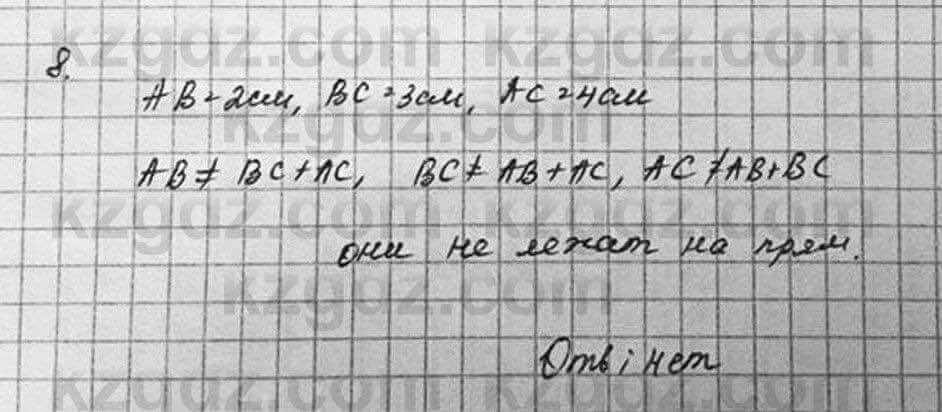 kzgdz.com kzgdz.com
8.
AB = 2см, BC = 3см, AC = 4см
kzgdz.com
AB ≠ BC + AC, BC ≠ AB + AC, AC ≠ AB + BC
kzgdz.com kzgdz.com
они не лежат на прям.
kzgdz.com
Отв: нет
kzgdz.com kzgdz.com